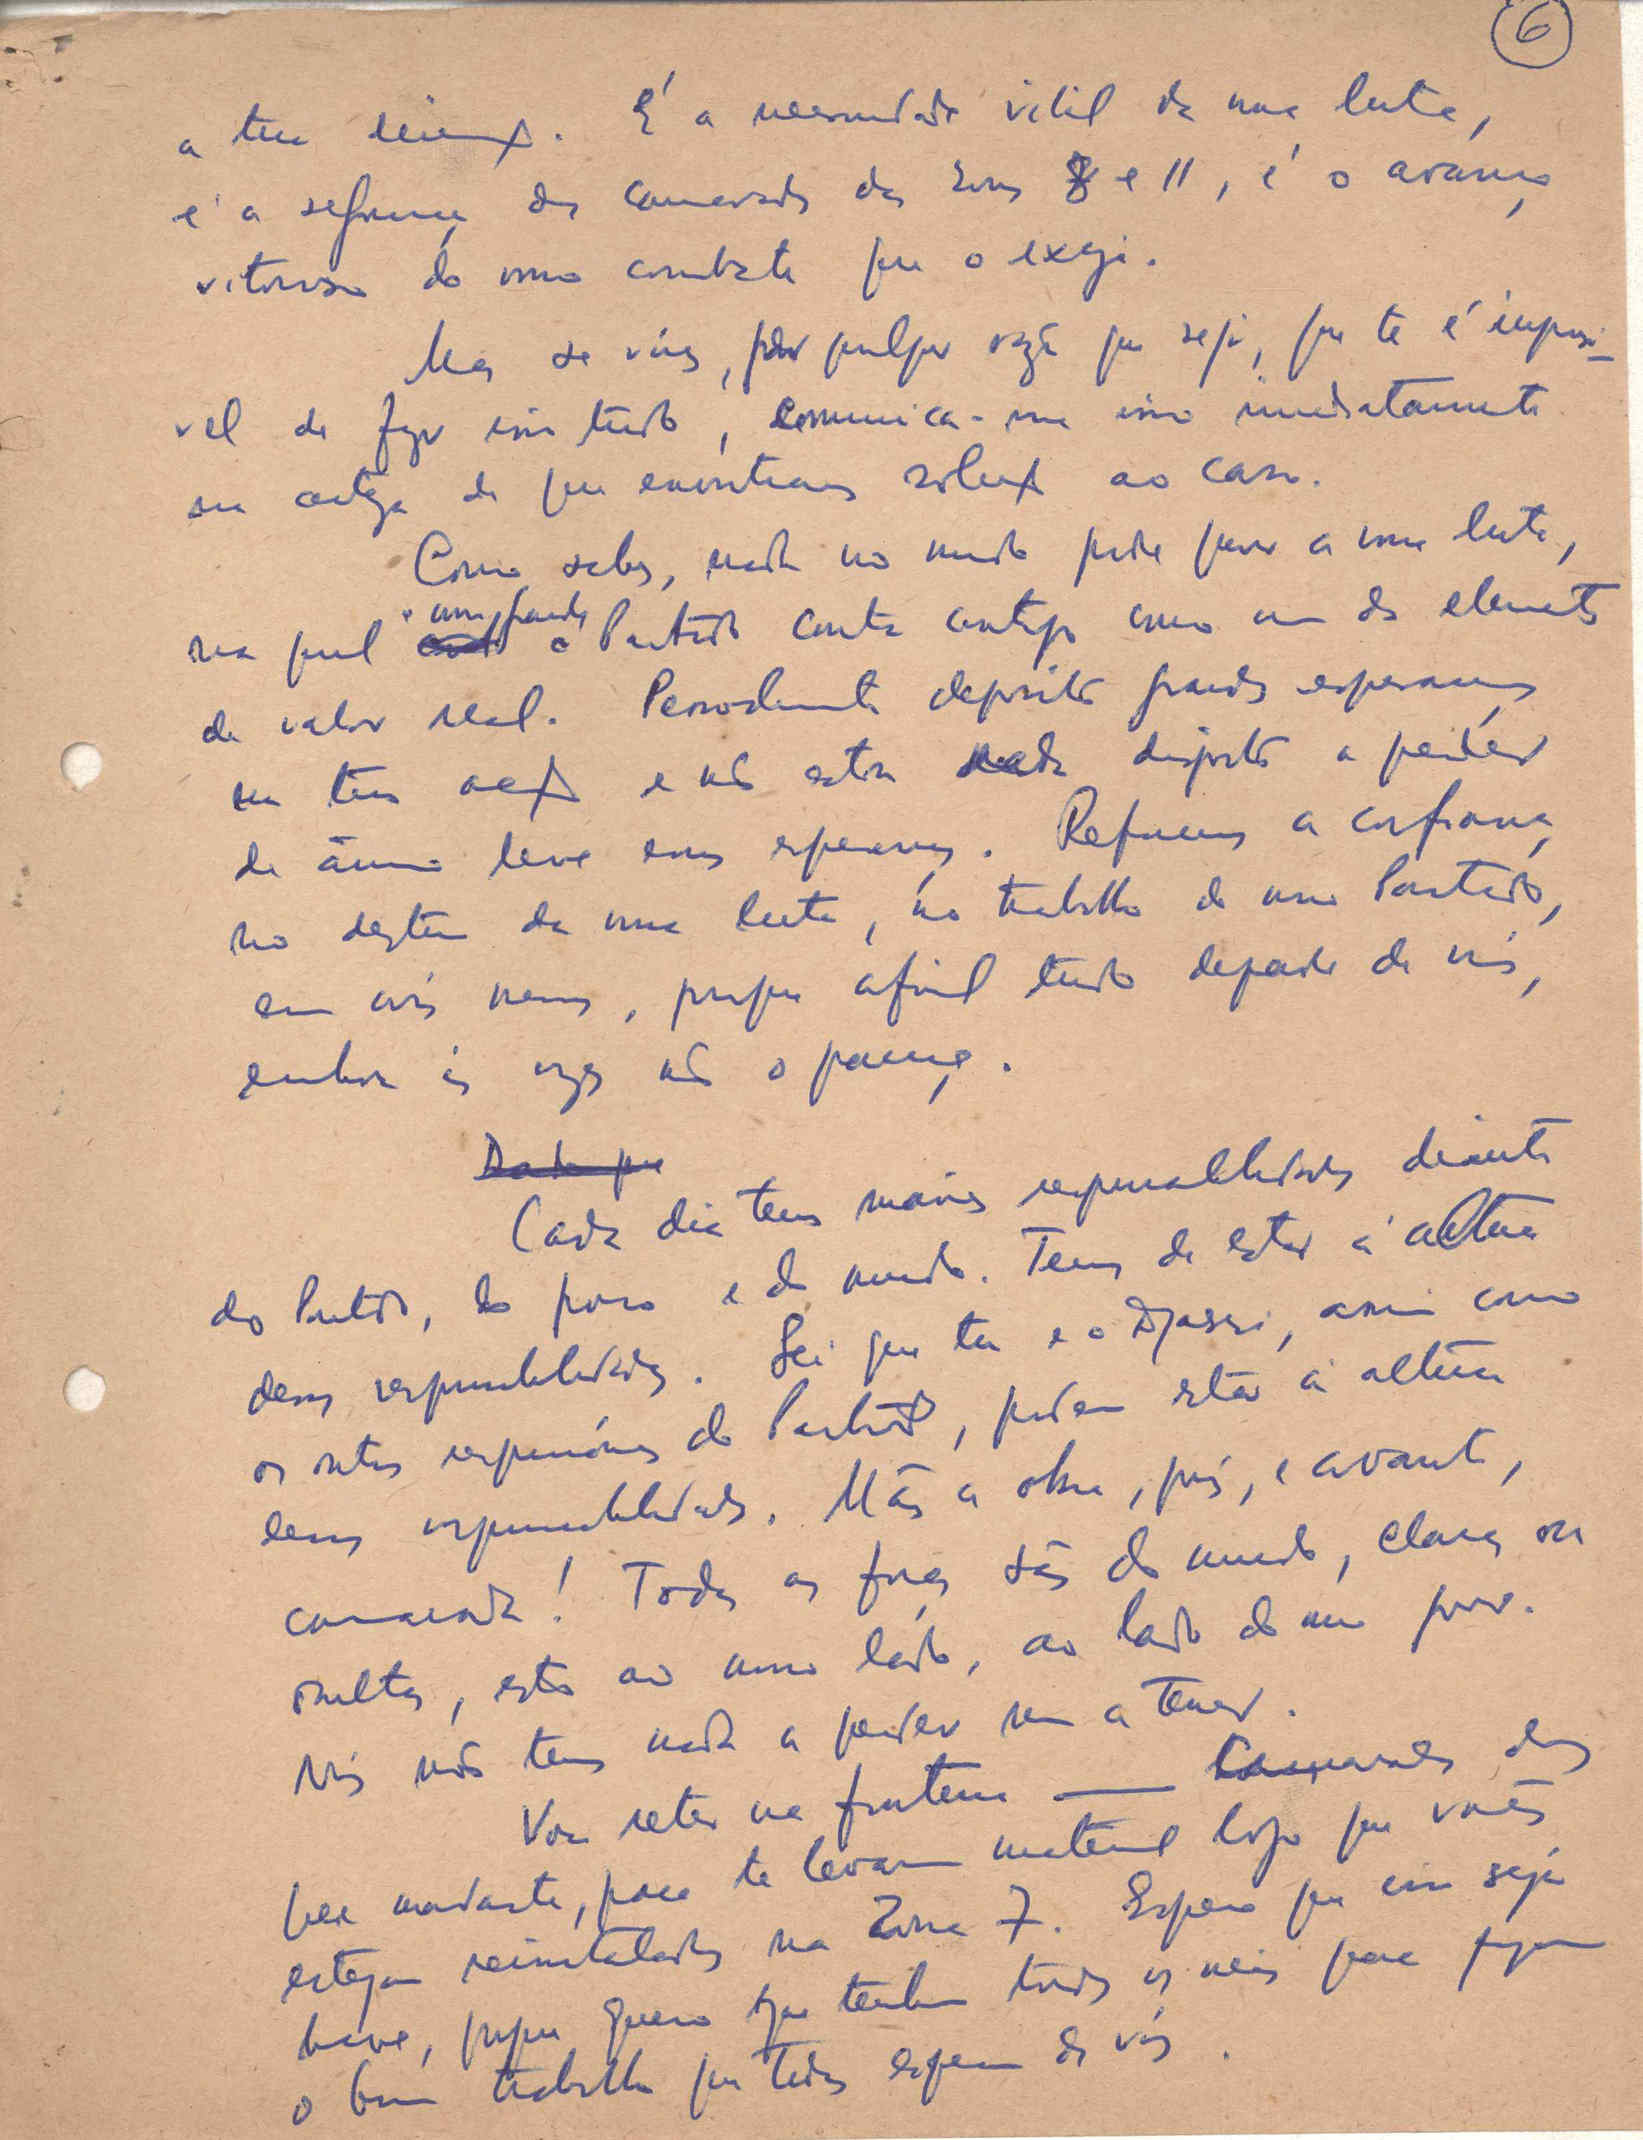 6
a tua decisão. É a necessidade vital da nossa luta,
é a segurança dos camaradas das zonas 8 e 11, é o avanço
vitorioso do nosso combate que o exige.
Mas se vires, por qualquer razão que seja, que te é impossí-
vel de fazer isso tudo, comunica-me isso imediatamente
na certeza de que encontramos solução ao caso.
Como sabes, nada no mundo pode parar a nossa luta,
na qual o nosso grande Partido conta contigo como um dos elementos
de valor real. Pessoalmente deposito grandes esperanças
na tua acção e não estou nada disposto a perder
de ânimo leve essas esperanças. Reforcemos a confiança
no destino da nossa luta, no trabalho do nosso Partido,
em nós mesmos, porque afinal tudo depende de nós,
embora às vezes não o pareça.
Dado que
Cada dia temos maiores responsabilidades diante
do Partido, do povo e do mundo. Temos de estar à altura
dessas responsabilidades. Sei que tu e o Djassi, assim como
os outros responsáveis do Partido, podem estar à altura
dessas responsabilidades. Mãos à obra, pois, e avante,
camarada! Todas as forças sãs do mundo, claras ou
ocultas, estão ao nosso lado, ao lado do nosso povo.
Nós não temos nada a perder nem a temer.
Vou reter na fronteira — Camaradas dos
que mandaste, para te levarem material logo que vocês
estejam reinstalados na Zona 7. Espero que isso seja
breve, porque quero que tenham todos os meios para fazerem
o bom trabalho que todos esperam de vós.